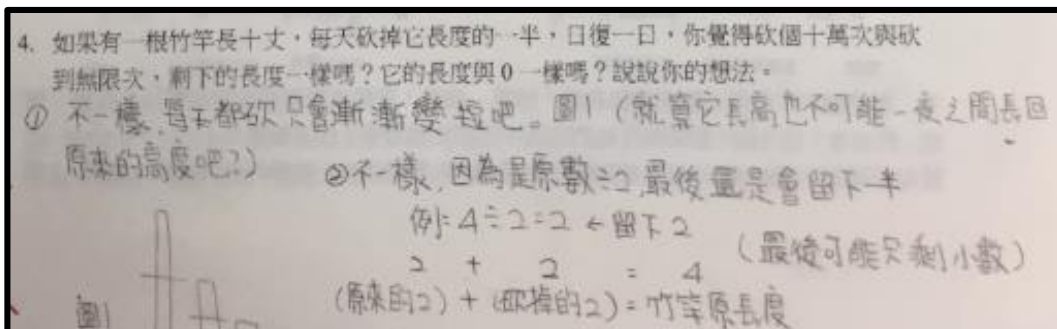 4. 如果有一根竹竿長十丈,每天砍掉它長度的一半,日復一日,你覺得砍個十萬次與砍
到無限次,剩下的長度一樣嗎?它的長度與0一樣嗎?說說你的想法。
① 不一樣,每天都砍只會漸漸變短吧。圖1(就算它長高也不可能一夜之間長回
原來的高度吧?)
②不一樣,因為是原數÷2,最後還是會留下一半
例:4÷2=2 ← 留下2
2 + 2 = 4 (最後可能只剩小數)
(原來的2)+(砍掉的2)=竹竿原長度
圖1